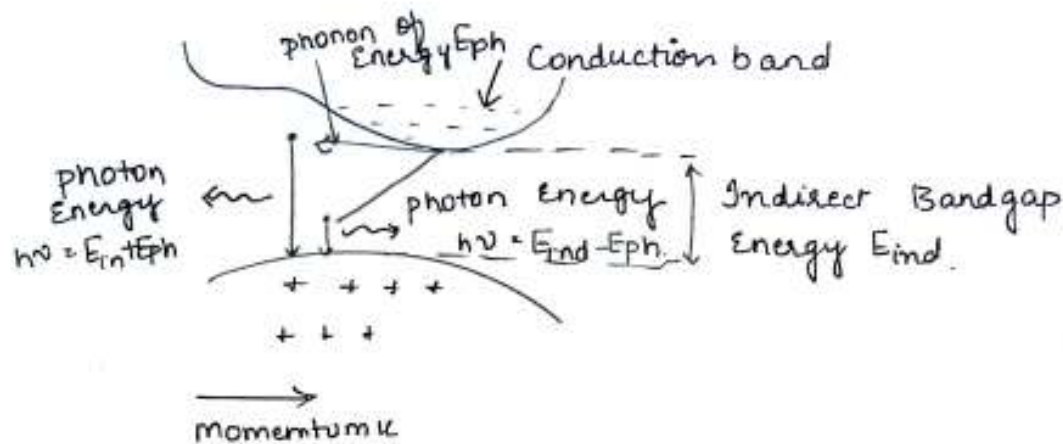 phonon of
Energy Eph
Conduction band
photon
Energy
hν = Ein+Eph
photon Energy
hν = Eind-Eph.
Indirect Bandgap
Energy Eind.
+ + + +
+ + +
Momemtum k